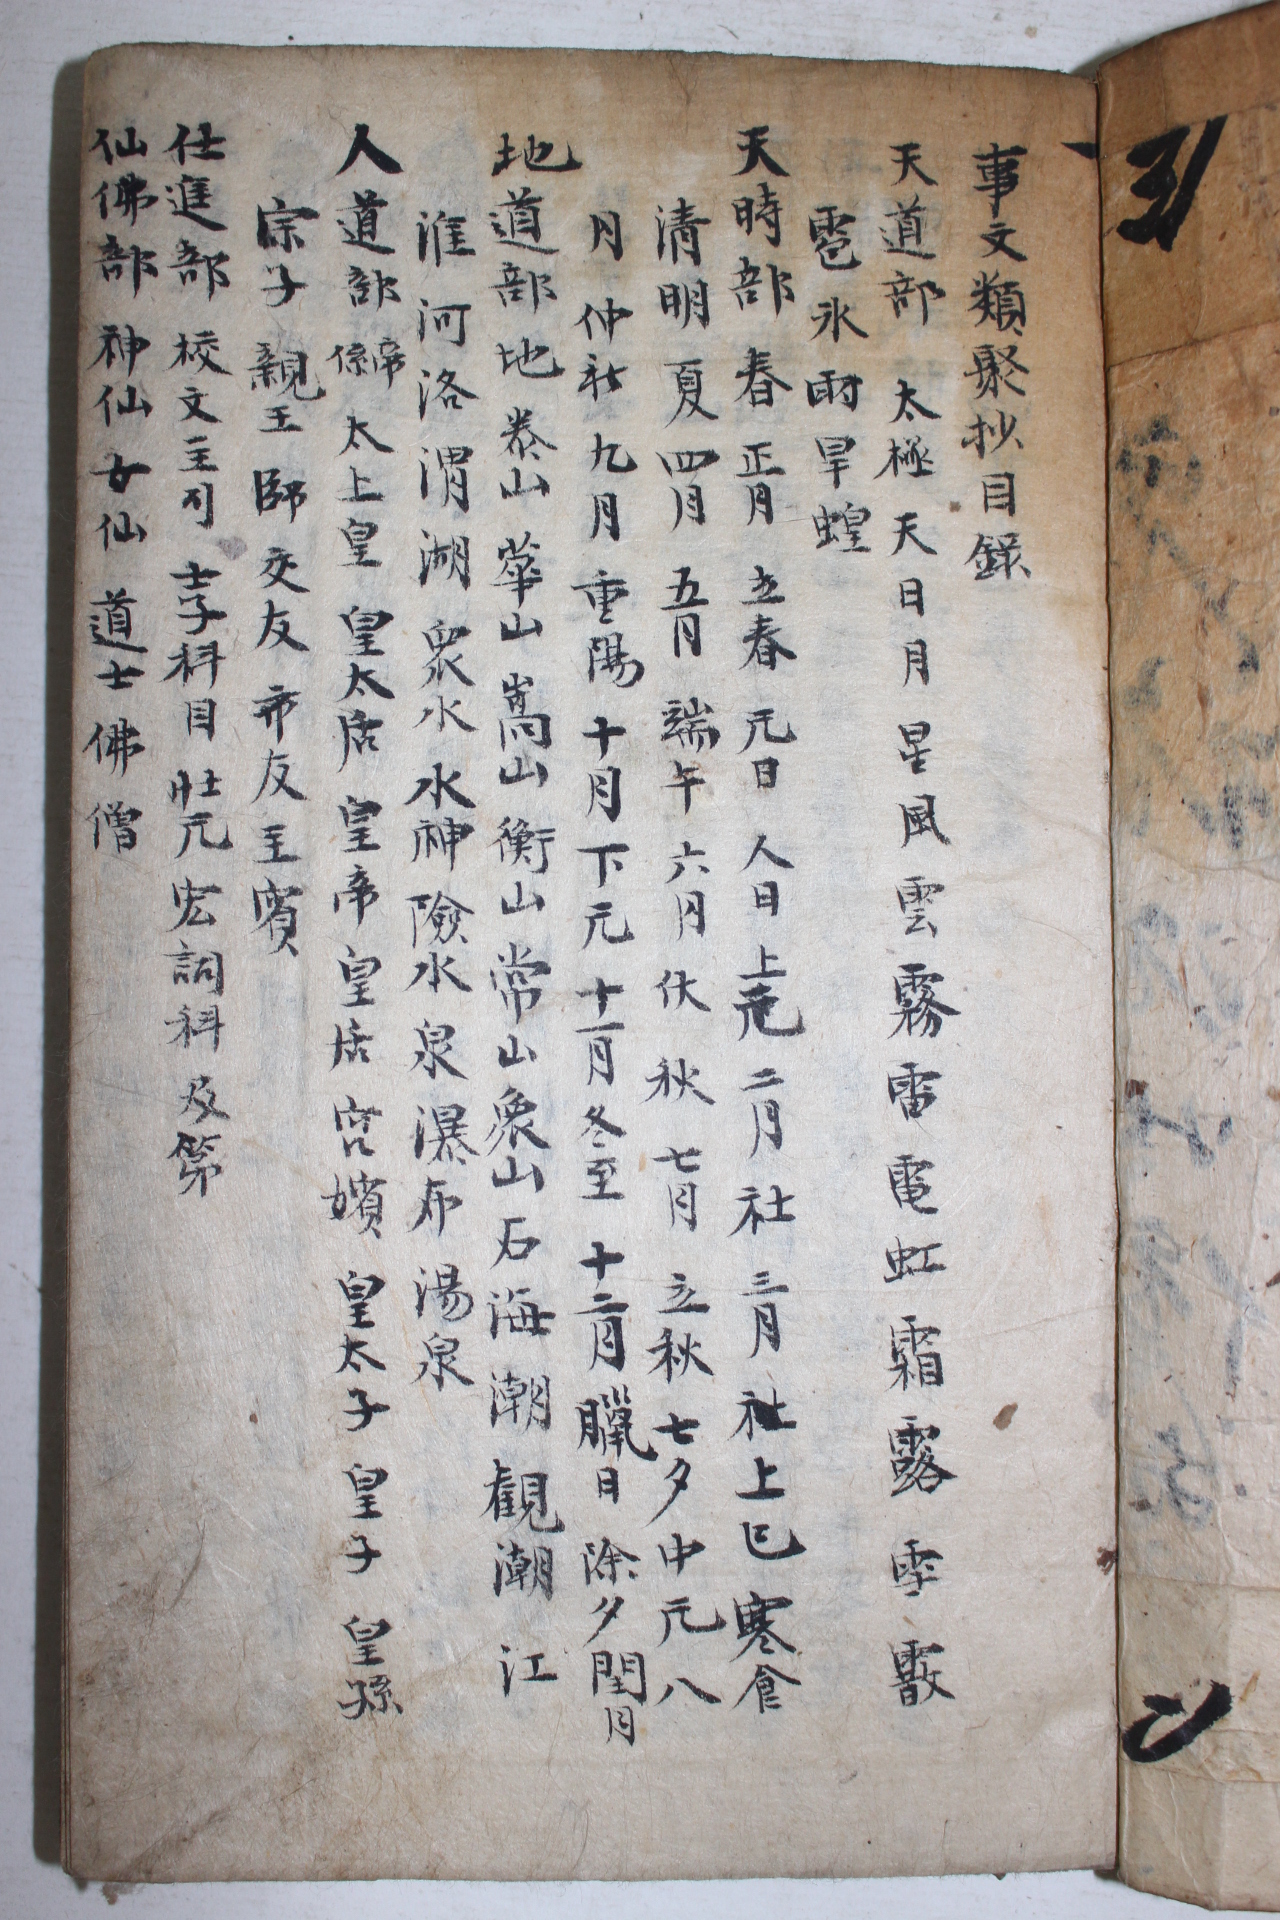 事文類聚抄目錄
天道部 太極 天 日 月 星 風 雲 霧 雷 電 虹 霜 露 雪 霰
雹 氷 雨 旱 蝗
天時部 春 正月 立春 元日 人日 上元 二月 社 三月 社 上巳 寒食
清明 夏 四月 五月 端午 六月 伏 秋 七月 立秋 七夕 中元 八
月 仲秋 九月 重陽 十月 下元 十一月 冬至 十二月 臘日 除夕 閏月
地道部 地 泰山 華山 嵩山 衡山 常山 衆山 石 海 潮 觀潮 江
淮 河 洛 渭 湖 衆水 水神 險水 泉 瀑布 湯泉
人道部 帝係 太上皇 皇太后 皇帝 皇后 宮嬪 皇太子 皇子 皇孫
宗子 親王 師 交友 市友 主賓
仕進部 校文主司 士子科目 壯元 宏詞科 及第
仙佛部 神仙 女仙 道士 佛 僧